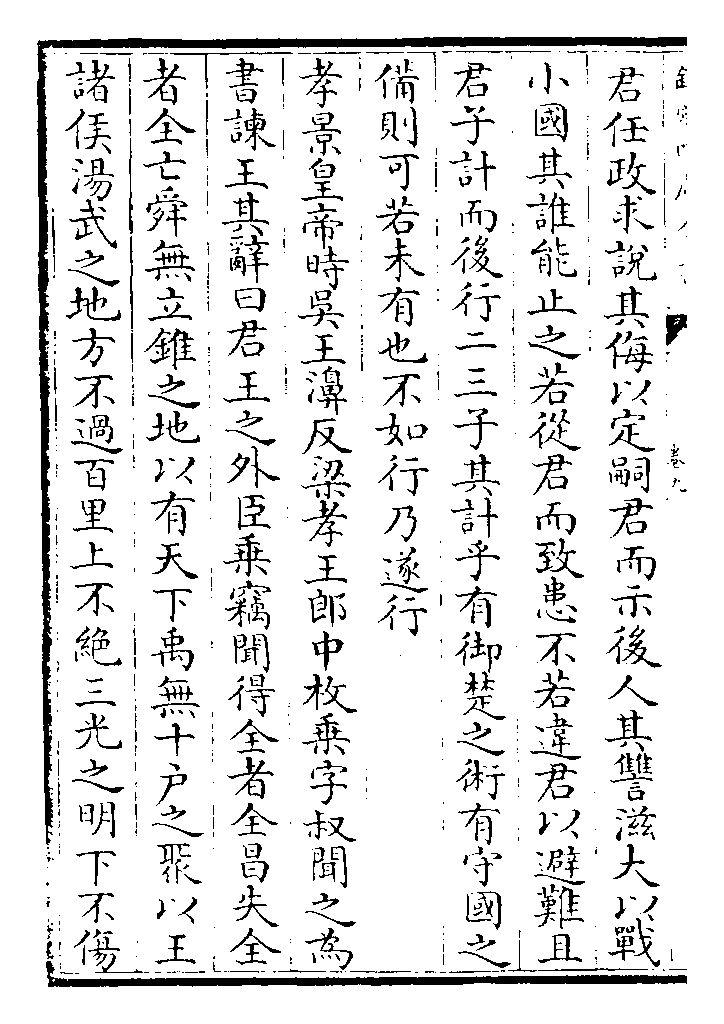 君任政求說其侮以定嗣君而示後人其讐滋大以戰
小國其誰能止之若從君而致患不若違君以避難且
君子計而後行二三子其計乎有御楚之術有守國之
備則可若未有也不如行乃遂行
孝景皇帝時吳王濞反梁孝王郎中枚乗字叔聞之為
書諫王其辭曰君王之外臣乗竊聞得全者全昌失全
者全亡舜無立錐之地以有天下禹無十户之聚以王
諸侯湯武之地方不過百里上不絶三光之明下不傷
卷九